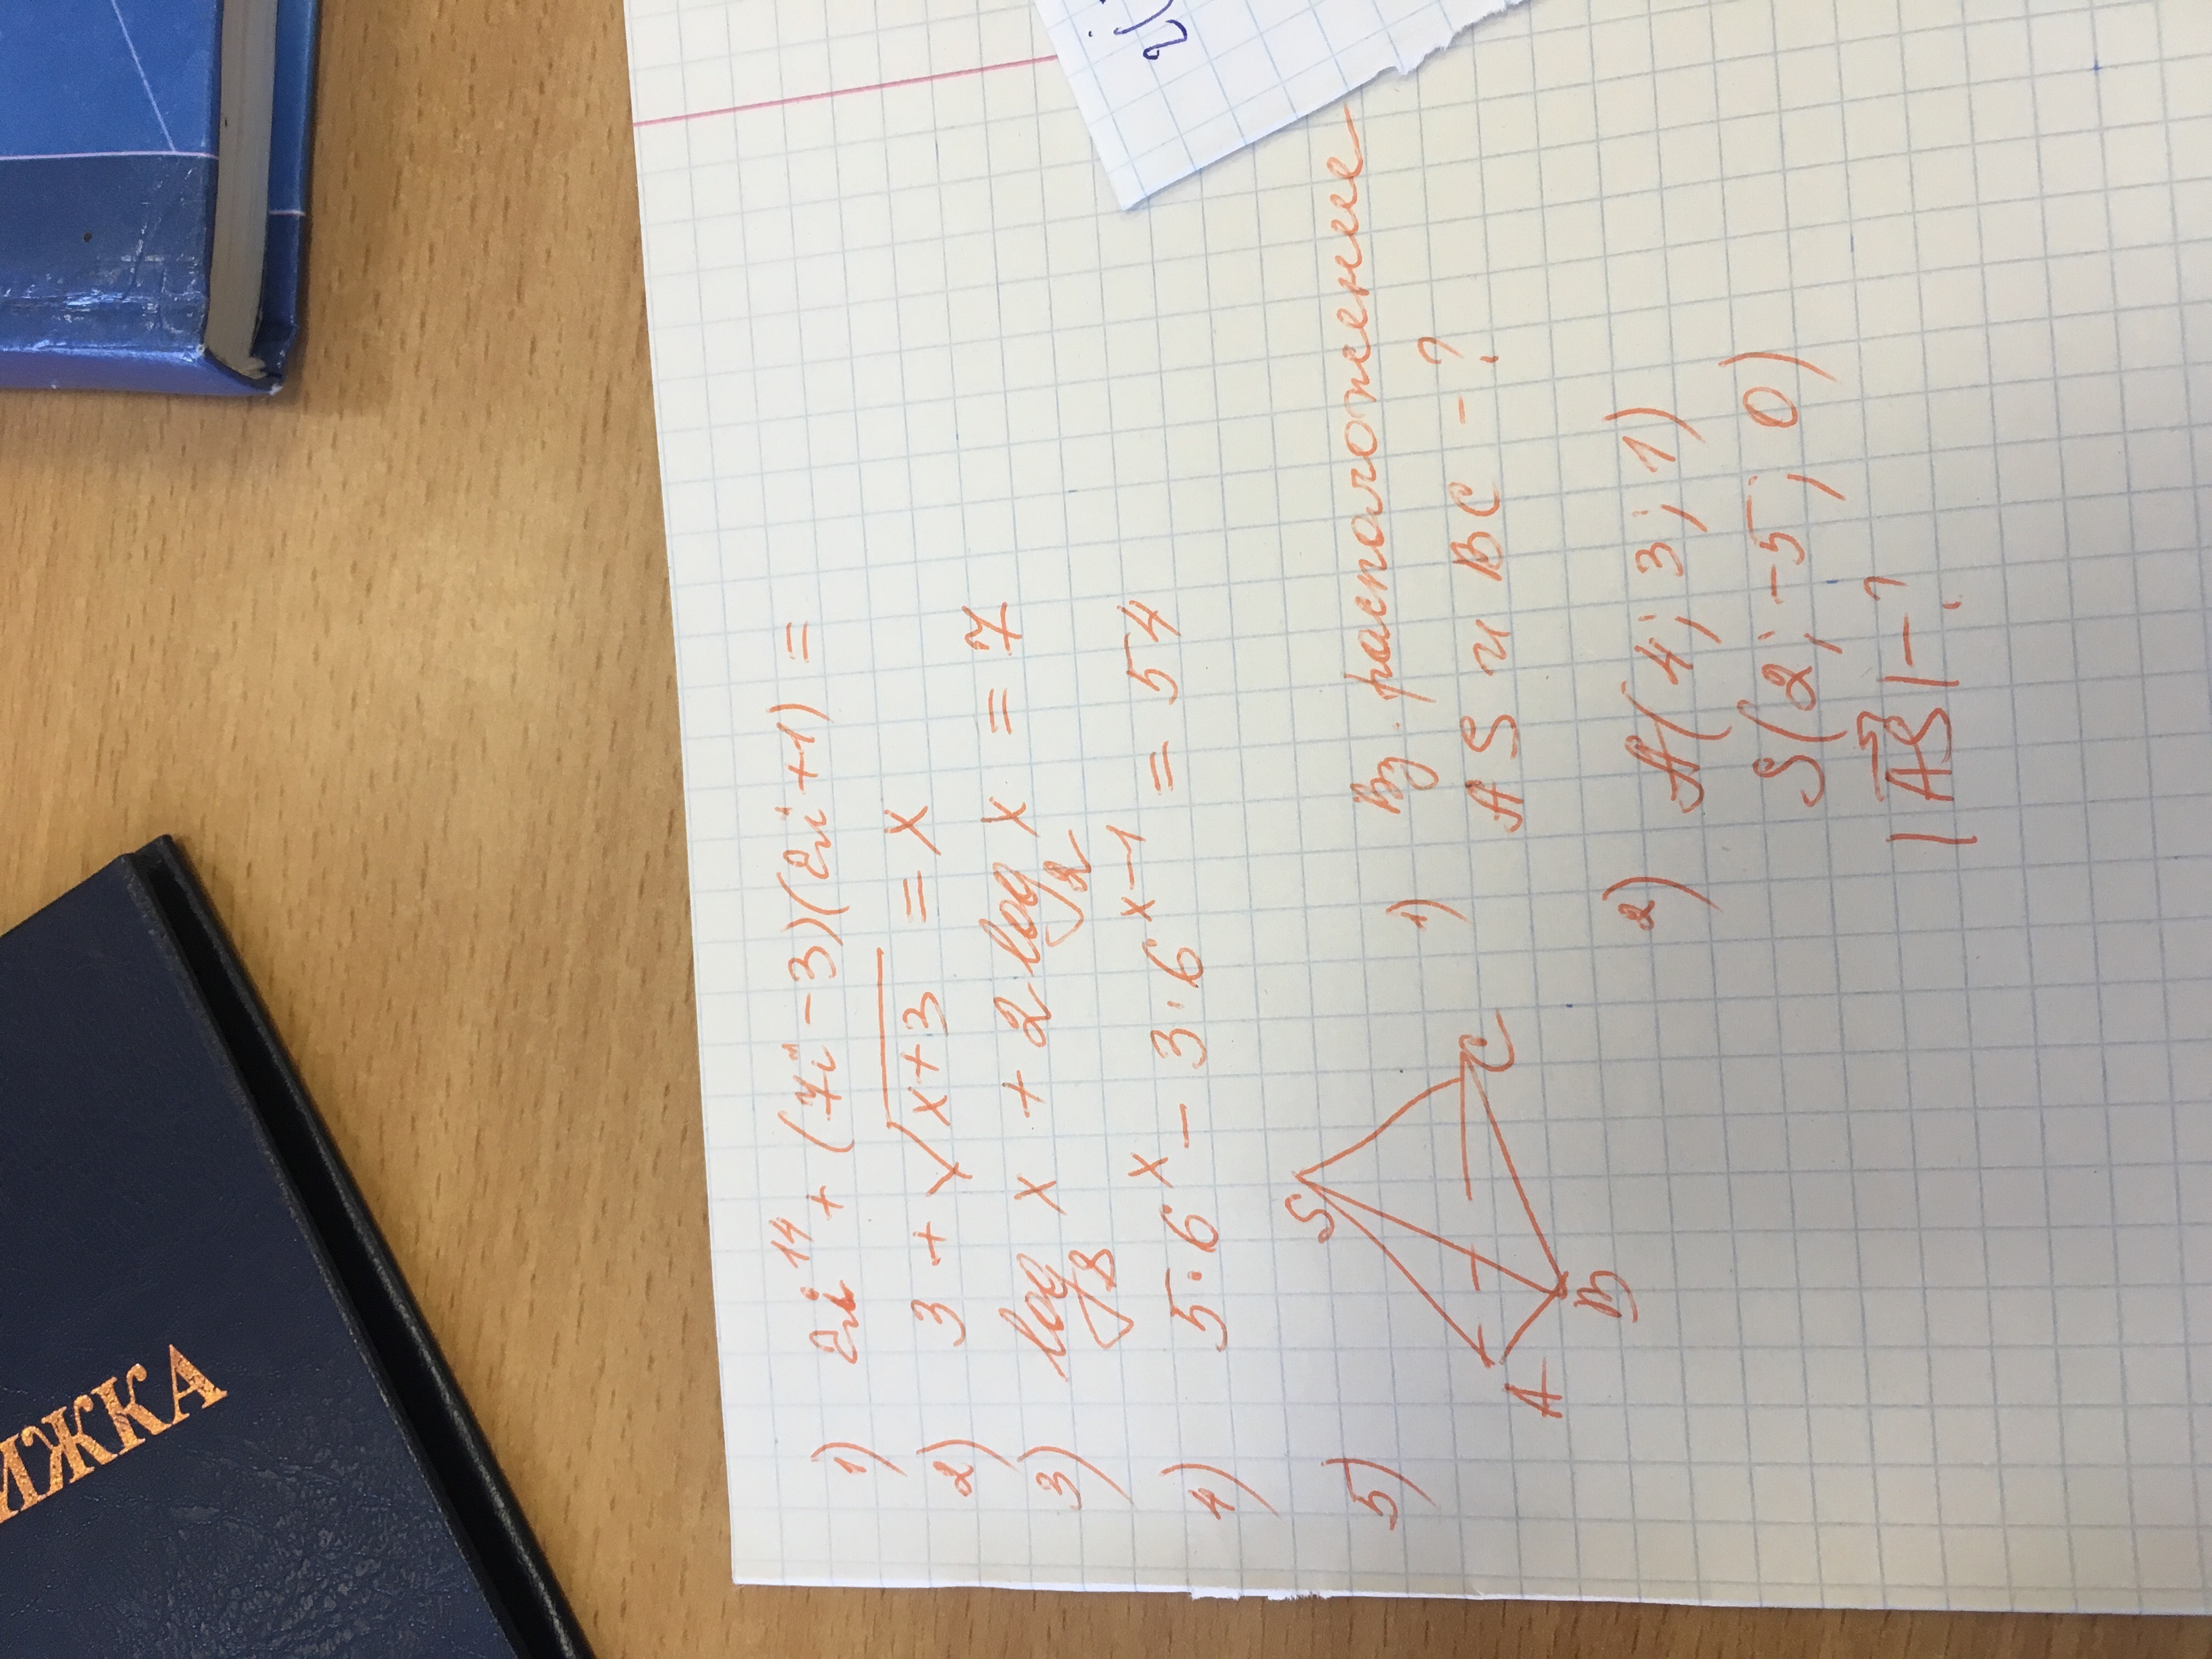 1) 2i¹⁴ + (7i - 3)(2i + 1) =
2) 3 + √(x+3) = x
3) log₈ x + 2 log₂ x = 7
4) 5·6ˣ - 3·6ˣ⁻¹ = 54
5)
S
A
B
C
1) Вз. расположение
AS и BC - ?
2) A(4; 3; 1)
S(2; -5; 0)
|AS| - ?
ИЖКА